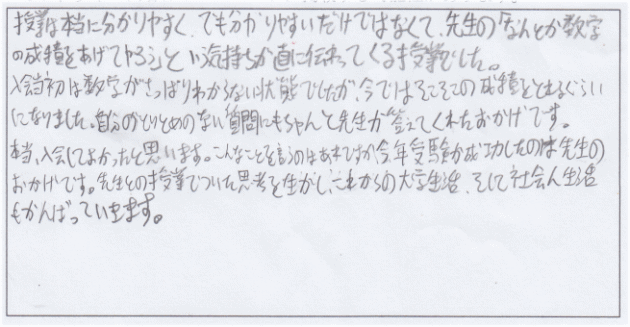 授業は本当に分かりやすく、でも分かりやすいだけではなくて、先生の「なんとか数学
の成績をあげてやろう」という気持ちが直に伝わってくる授業でした。
入会当初は数学がさっぱりわからない状態でしたが、今ではそこそこの成績をとれるぐらい
になりました。自分のとりとめのない質問にもちゃんと先生が答えてくれたおかげです。
本当、入会してよかったと思います。こんなことを言うのはあれですが今年受験が成功したのは先生の
おかげです。先生との授業でついた思考を生かし、これからの大学生活、そして社会人生活
もがんばっていきます。